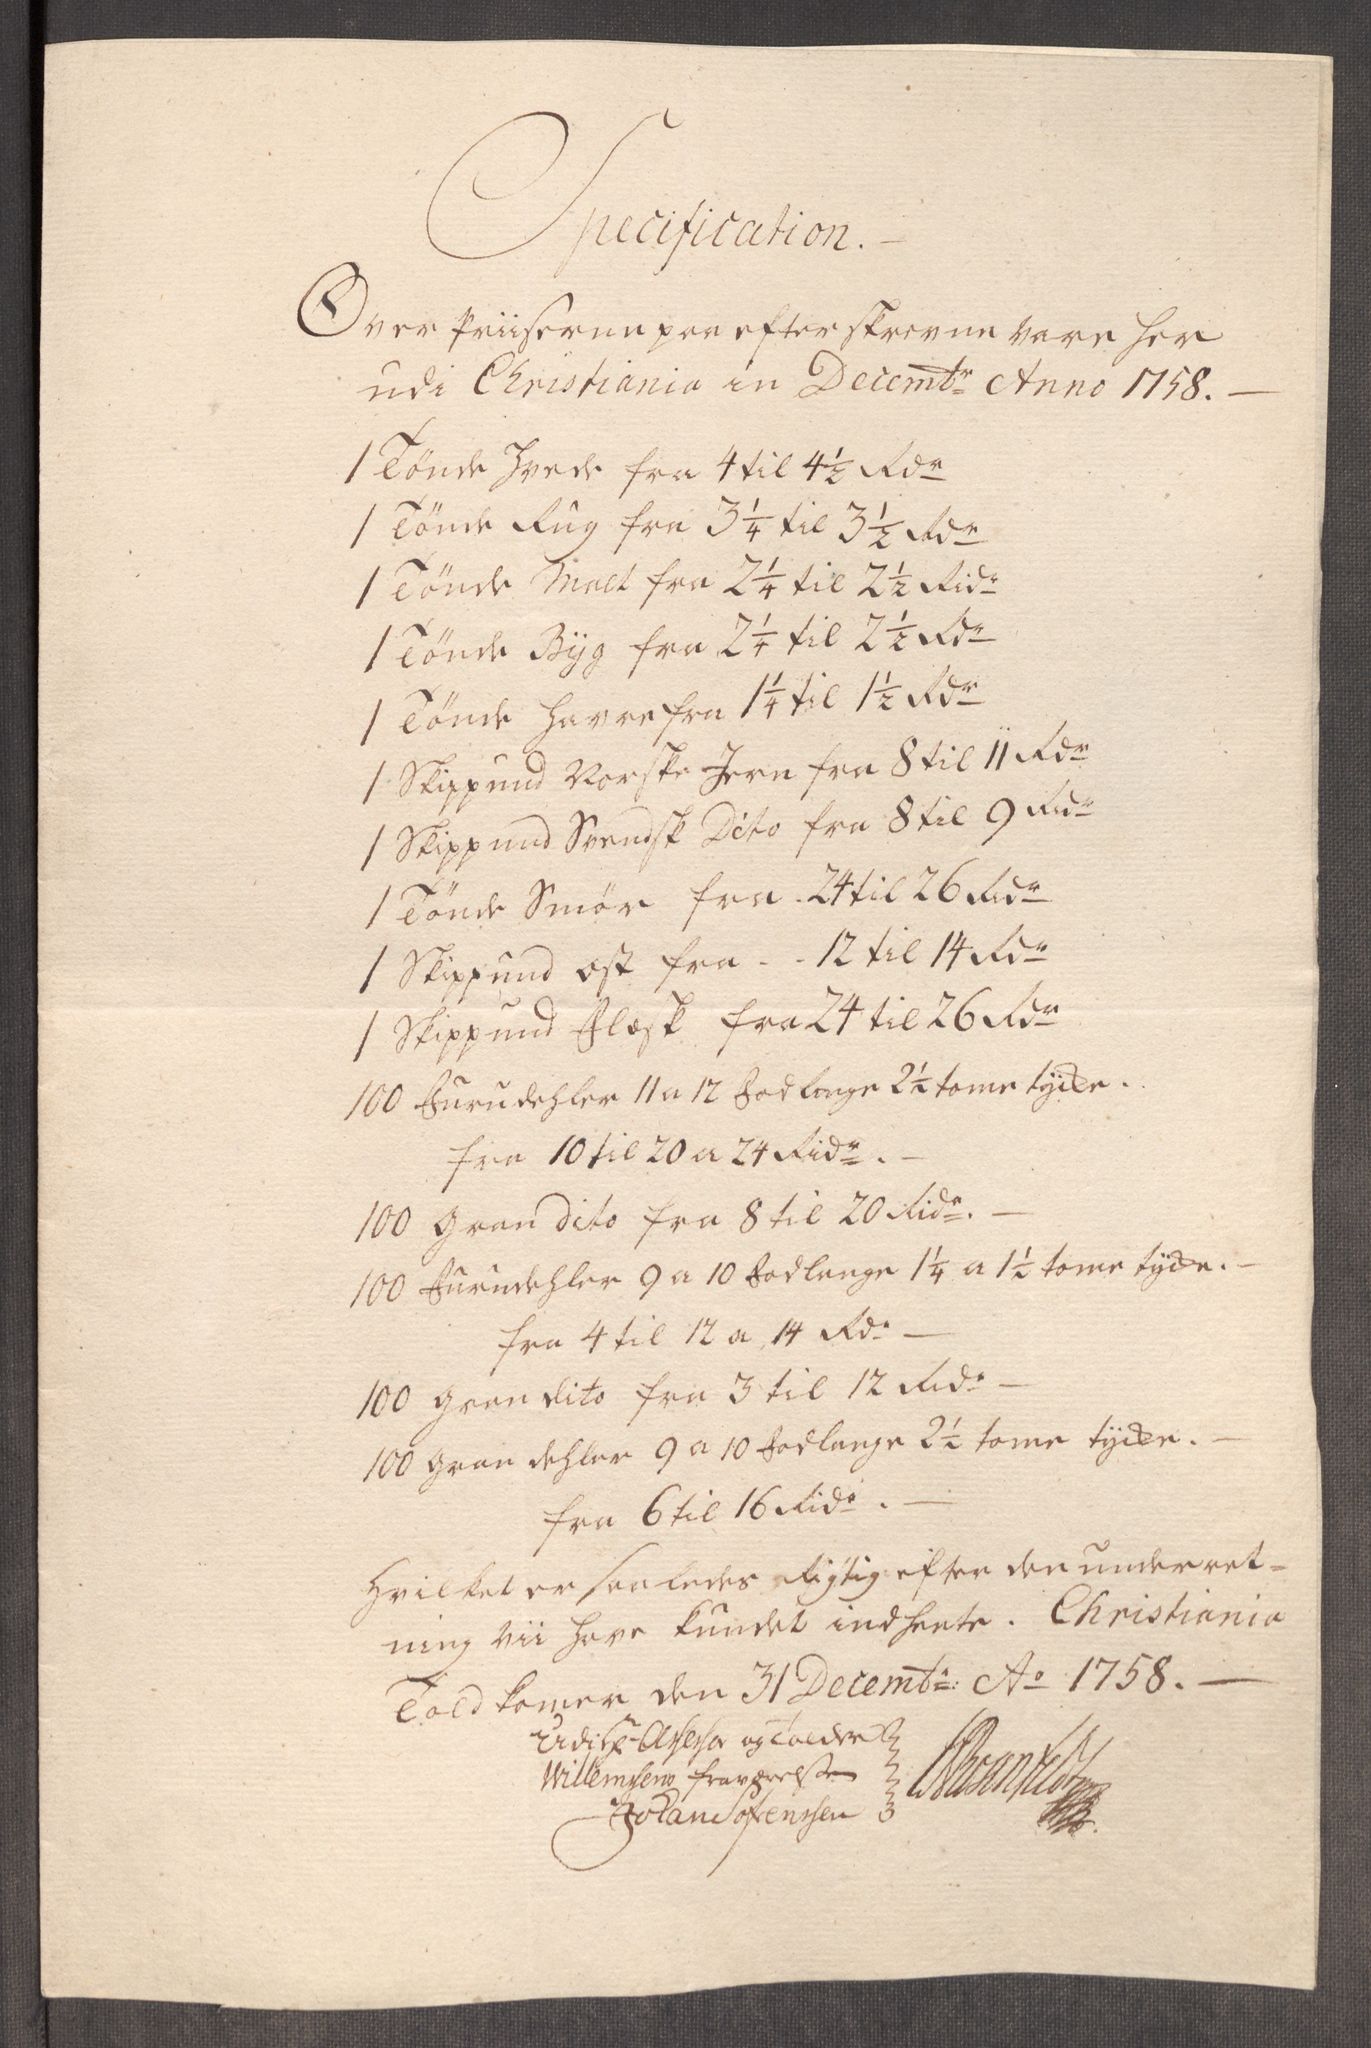 Specification.
Over Priiserne paa efterskrevne vare her
udi Christiania in Decembr Anno 1758.
1 Tönde Hvede fra 4 til 4½ Rdr
1 Tönde Rug fra 3¼ til 3½ Rdr
1 Tönde Malt fra 2¼ til 2½ Ridr
1 Tönde Byg fra 2¼ til 2½ Rdr
1 Tönde Havre fra 1¼ til 1½ Rdr
1 Skippund Norske Jern fra 8 til 11 Rdr
1 Skippund Svendsk Dito fra 8 til 9 Rdr
1 Tönde Smör fra 24 til 26 Ridr
1 Skippund ost fra 12 til 14 Rdr
1 Skippund Flesk fra 24 til 26 Rdr
100 Furudehler 11 a 12 Fod lange 2½ tome tycke.
fra 10 til 20 a 24 Ridr.
100 Gran dito fra 8 til 20 Ridr.
100 Furudehler 9 a 10 Fod lange 1¼ a 1½ tome tycke.
fra 4 til 12 a 14 Rdr
100 Gran dito fra 3 til 12 Ridr
100 Gran dehler 9 a 10 Fod lange 2½ tome tycke.
fra 6 til 16 Ridr.
Hvilket er saaledes Rigtig efter den underret-
ning vii have kundet indhente. Christiania
Told kamer den 31 Decembr: Ao 1758.
Udi Hr Assessor og Tolder
Willemsens fraværelse